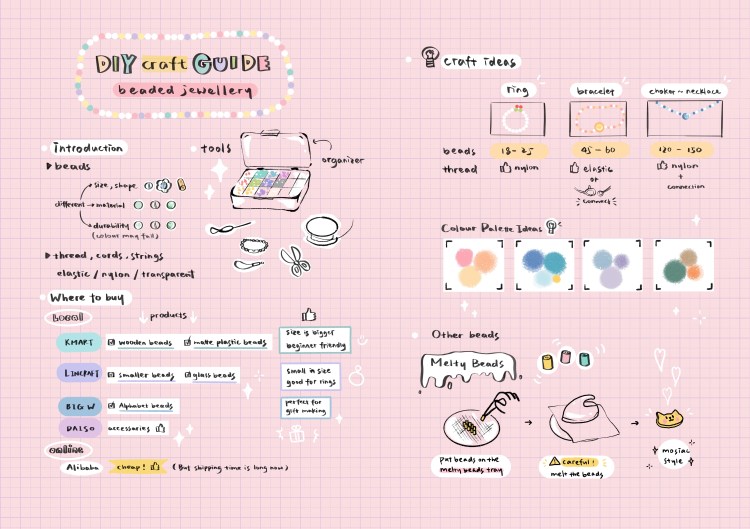 DIY craft GUIDE
beaded jewellery
Introduction
▶ beads
different
→ size, shape
→ material
→ durability
(colour may fail)
▶ thread, cords, strings
elastic / nylon / transparent
tools
organizer
Where to buy
LOCAL
products
KMART
wooden beads
matte plastic beads
size is bigger
beginner friendly
LINCRAFT
smaller beads
glass beads
small in size
good for rings
BIG W
Alphabet beads
perfect for
gift making
DAISO
accessories
ONLINE
Alibaba
cheap!
(But shipping time is long now)
craft ideas
ring
bracelet
choker ~ necklace
beads
18 - 25
45 - 60
120 - 150
thread
nylon
elastic
or
connect
nylon
+
connection
Colour Palette Ideas
Other beads
Melty Beads
put beads on the
melty beads tray
careful!
melt the beads
mosiac
style